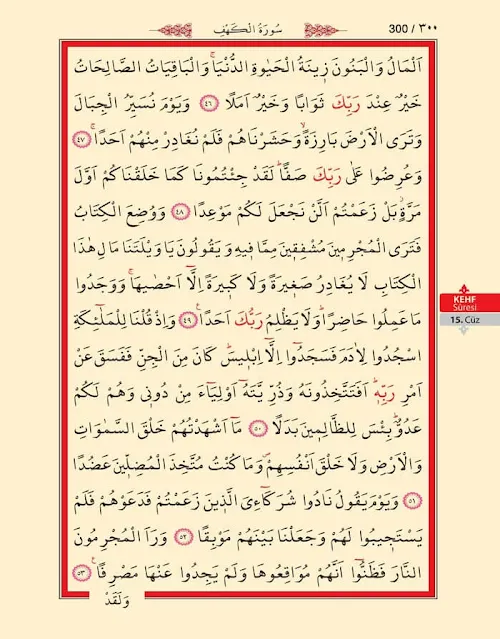 300 / ٣٠٠
سُورَةُ الْكَهْفِ
اَلْمَالُ وَالْبَنُونَ زٖينَةُ الْحَيٰوةِ الدُّنْيَاۚ وَالْبَاقِيَاتُ الصَّالِحَاتُ
خَيْرٌ عِنْدَ رَبِّكَ ثَوَابًا وَخَيْرٌ اَمَلًا ﴿٤٦﴾ وَيَوْمَ نُسَيِّرُ الْجِبَالَ
وَتَرَى الْاَرْضَ بَارِزَةًۙ وَحَشَرْنَاهُمْ فَلَمْ نُغَادِرْ مِنْهُمْ اَحَدًاۚ ﴿٤٧﴾
وَعُرِضُوا عَلٰى رَبِّكَ صَفًّاۜ لَقَدْ جِئْتُمُونَا كَمَا خَلَقْنَاكُمْ اَوَّلَ
مَرَّةٍۘ بَلْ زَعَمْتُمْ اَلَّنْ نَجْعَلَ لَكُمْ مَوْعِدًا ﴿٤٨﴾ وَوُضِعَ الْكِتَابُ
فَتَرَى الْمُجْرِمٖينَ مُشْفِقٖينَ مِمَّا فٖيهِ وَيَقُولُونَ يَا وَيْلَتَنَا مَالِ هٰذَا
الْكِتَابِ لَا يُغَادِرُ صَغٖيرَةً وَلَا كَبٖيرَةً اِلَّٓا اَحْصٰيهَاۚ وَوَجَدُوا
مَا عَمِلُوا حَاضِرًاۜ وَلَا يَظْلِمُ رَبُّكَ اَحَدًاۚ ﴿٤٩﴾ وَاِذْ قُلْنَا لِلْمَلٰٓئِكَةِ
اسْجُدُوا لِاٰدَمَ فَسَجَدُٓوا اِلَّٓا اِبْلٖيسَۜ كَانَ مِنَ الْجِنِّ فَفَسَقَ عَنْ
اَمْرِ رَبِّهٖۜ اَفَتَتَّخِذُونَهُ وَذُرِّيَّتَهُٓ اَوْلِيَٓاءَ مِنْ دُونٖي وَهُمْ لَكُمْ
عَدُوٌّۜ بِئْسَ لِلظَّالِمٖينَ بَدَلًا ﴿٥٠﴾ مَٓا اَشْهَدْتُهُمْ خَلْقَ السَّمٰوَاتِ
وَالْاَرْضِ وَلَا خَلْقَ اَنْفُسِهِمْۖ وَمَا كُنْتُ مُتَّخِذَ الْمُضِلّٖينَ عَضُدًا
﴿٥١﴾ وَيَوْمَ يَقُولُ نَادُوا شُرَكَٓاءِيَ الَّذٖينَ زَعَمْتُمْ فَدَعَوْهُمْ فَلَمْ
يَسْتَجٖيبُوا لَهُمْ وَجَعَلْنَا بَيْنَهُمْ مَوْبِقًا ﴿٥٢﴾ وَرَاَ الْمُجْرِمُونَ
النَّارَ فَظَنُّٓوا اَنَّهُمْ مُوَاقِعُوهَا وَلَمْ يَجِدُوا عَنْهَا مَصْرِفًاۚ ﴿٥٣﴾
وَلَقَدْ
KEHF
Sûresi
15. Cüz